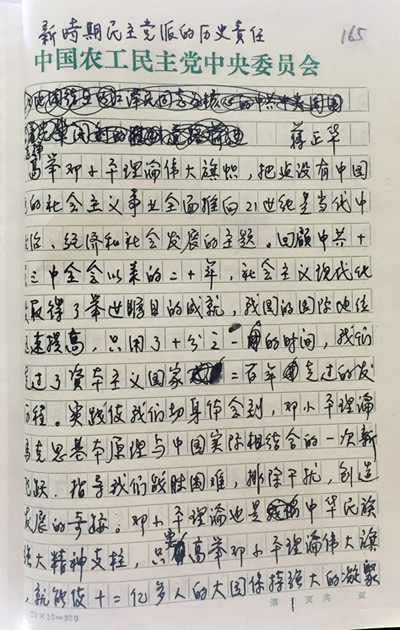 新时期民主党派的历史责任
165
中国农工民主党中央委员会
蒋正华
高举邓小平理论伟大旗帜，把建设有中国
的社会主义事业全面推向21世纪是当代中
经济和社会发展的主题。回顾中共十
三中全会以来的二十年，社会主义现代化
取得了举世瞩目的成就，我国的国际地位
速提高，只用了十分之一的时间，我们
走过了资本主义国家二百年走过的发
历程。实践使我们切身体会到，邓小平理论
马克思基本原理与中国实际相结合的一次新
飞跃，指导我们战胜困难，排除干扰，创造
发展的奇迹。邓小平理论也是中华民族
强大精神支柱，只有高举邓小平理论伟大旗
，就能使十二亿多人的大国保持强大的凝聚
25×15=300
第 1 页共 页